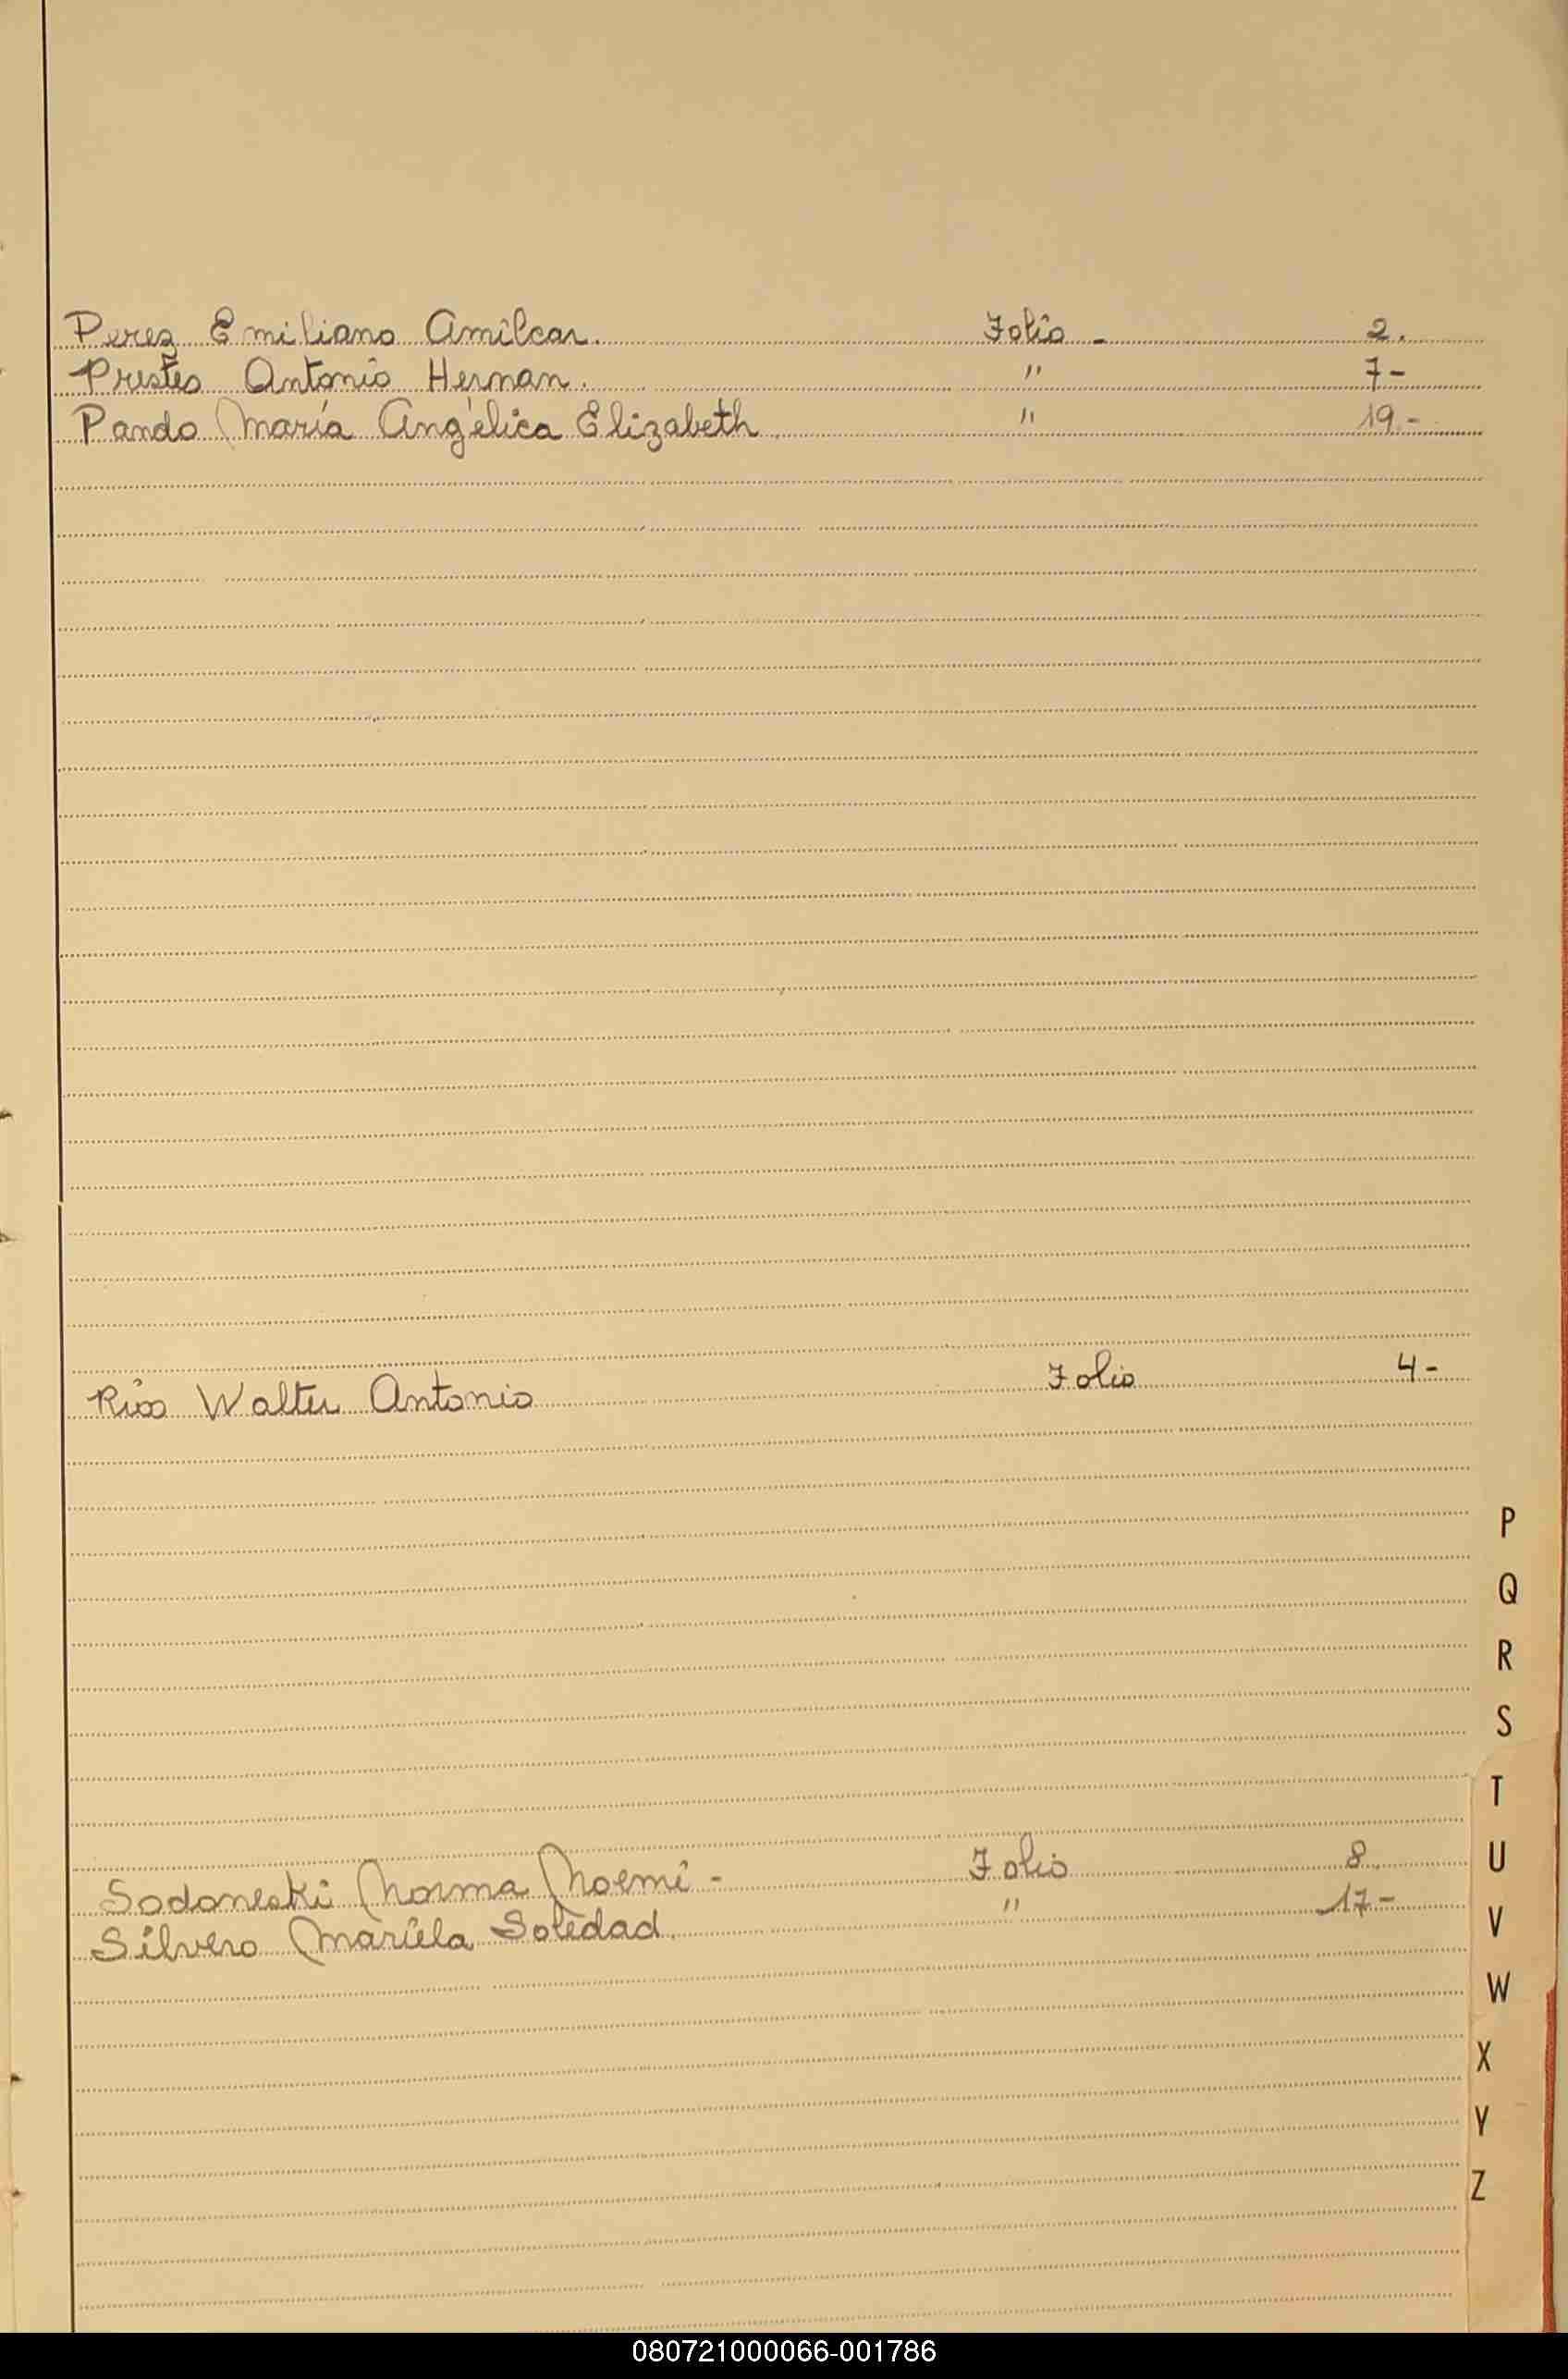 Perez Emiliano Amilcar. Folio - 2.
Prestes Antonio Hernan. " 7-
Pando María Angélica Elizabeth " 19.-
Rios Walter Antonio Folio 4-
P
Q
R
S
T
U
V
W
X
Y
Z
Sodoneski Norma Noemi - Folio 8
Silvero Mariela Soledad. " 17-
080721000066-001786